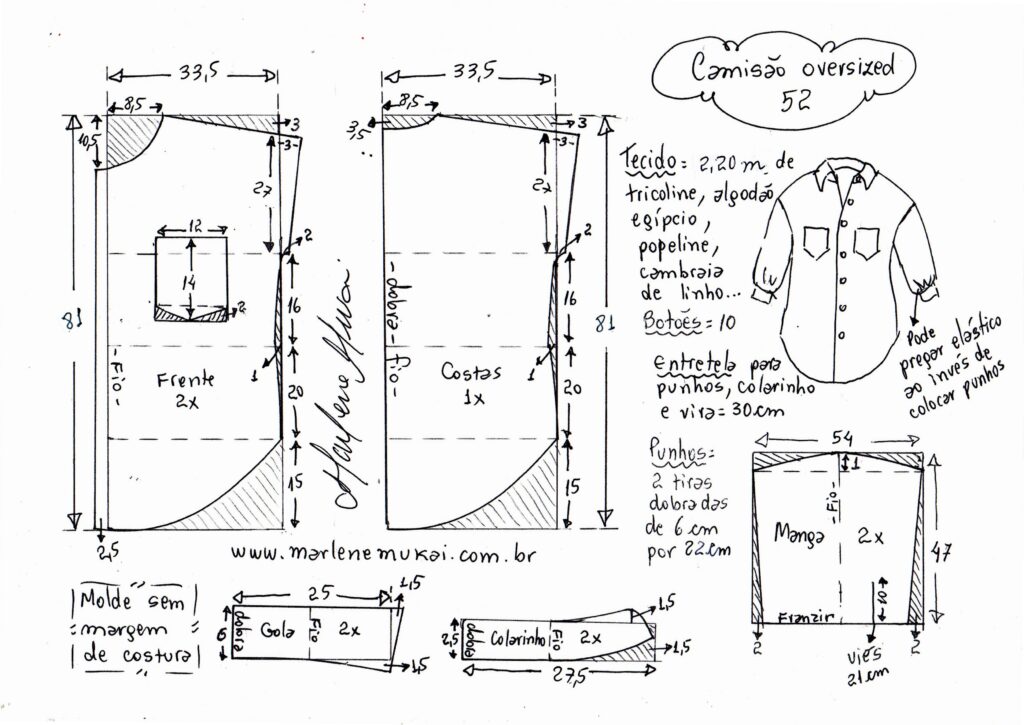 Camisão oversized
52
33,5
8,5
10,5
3
3
27
2
12
14
2
81
16
1
20
15
2,5
-Fio-
Frente
2x
Marlene Mukai
33,5
8,5
3,5
3
3
27
2
-dobra- Fio-
16
81
1
20
15
Costas
1x
Tecido= 2,20 m de
tricoline, algodão
egípcio,
popeline,
cambraia
de linho...
Botões=10
Entretela para
punhos, colarinho
e vira=30cm
Pode
pregar elástico
ao invés de
colocar punhos
Punhos=
2 tiras
dobradas
de 6cm
por 22cm
54
1
-Fio-
Manga 2x
47
10
Franzir
2
2
viés
21cm
www.marlenemukai.com.br
Molde sem
margem
de costura
25
1,5
6
dobra
Gola
Fio
2x
1,5
1,5
2,5
dobra
Colarinho
Fio
2x
1,5
27,5